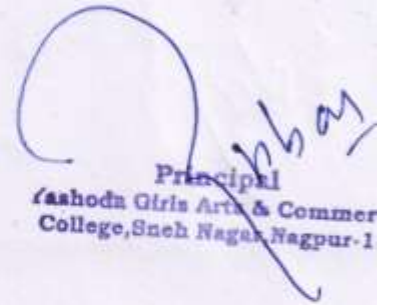 Principal
Yashoda Girls Arts & Commer
College,Sneh Nagar,Nagpur-1